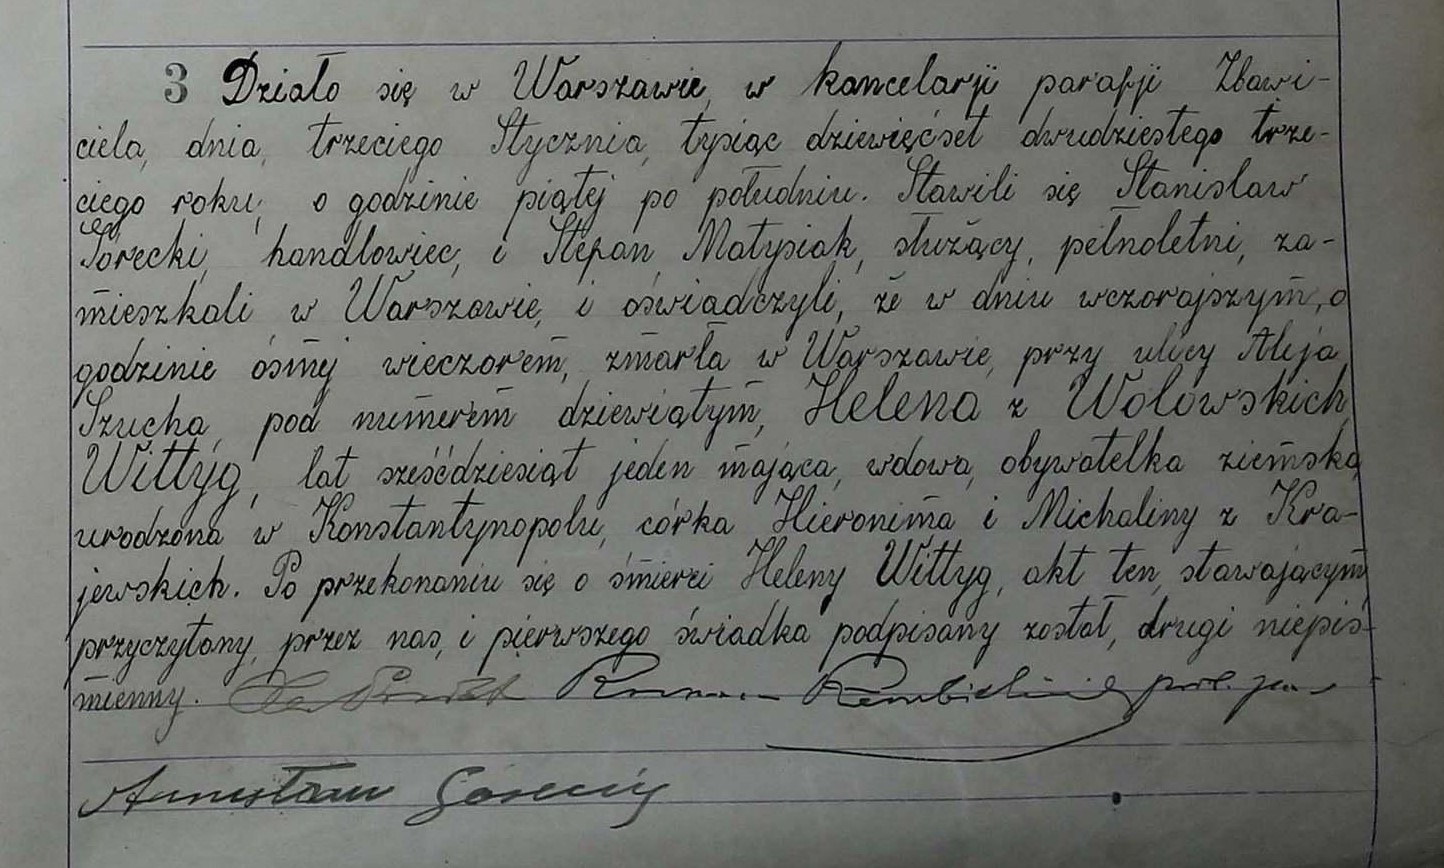 3 Działo się w Warszawie, w kancelarji parafji Zbawi-
ciela, dnia, trzeciego Stycznia, tysiąc dziewięćset dwudziestego trze-
ciego roku, o godzinie piątej po południu. Stawili się Stanisław
Gorecki, handlowiec, i Stefan Matysiak, służący, pełnoletni, za-
mieszkali w Warszawie, i oświadczyli, że w dniu wczorajszym, o
godzinie ósmej wieczorem, zmarła w Warszawie, przy ulicy Aleja
Szucha, pod numerem dziewiątym, Helena z Wołowskich
Wittyg, lat sześćdziesiąt jeden mająca, wdowa, obywatelka ziemska
urodzona w Konstantynopolu, córka Hieronima i Michaliny z Kra-
jewskich. Po przekonaniu się o śmierci Heleny Wittyg, akt ten, stawającym
przyczytany, przez nas, i pierwszego świadka podpisany został, drugi niepiś-
mienny. Rembieliński
Stanisław Gorecki